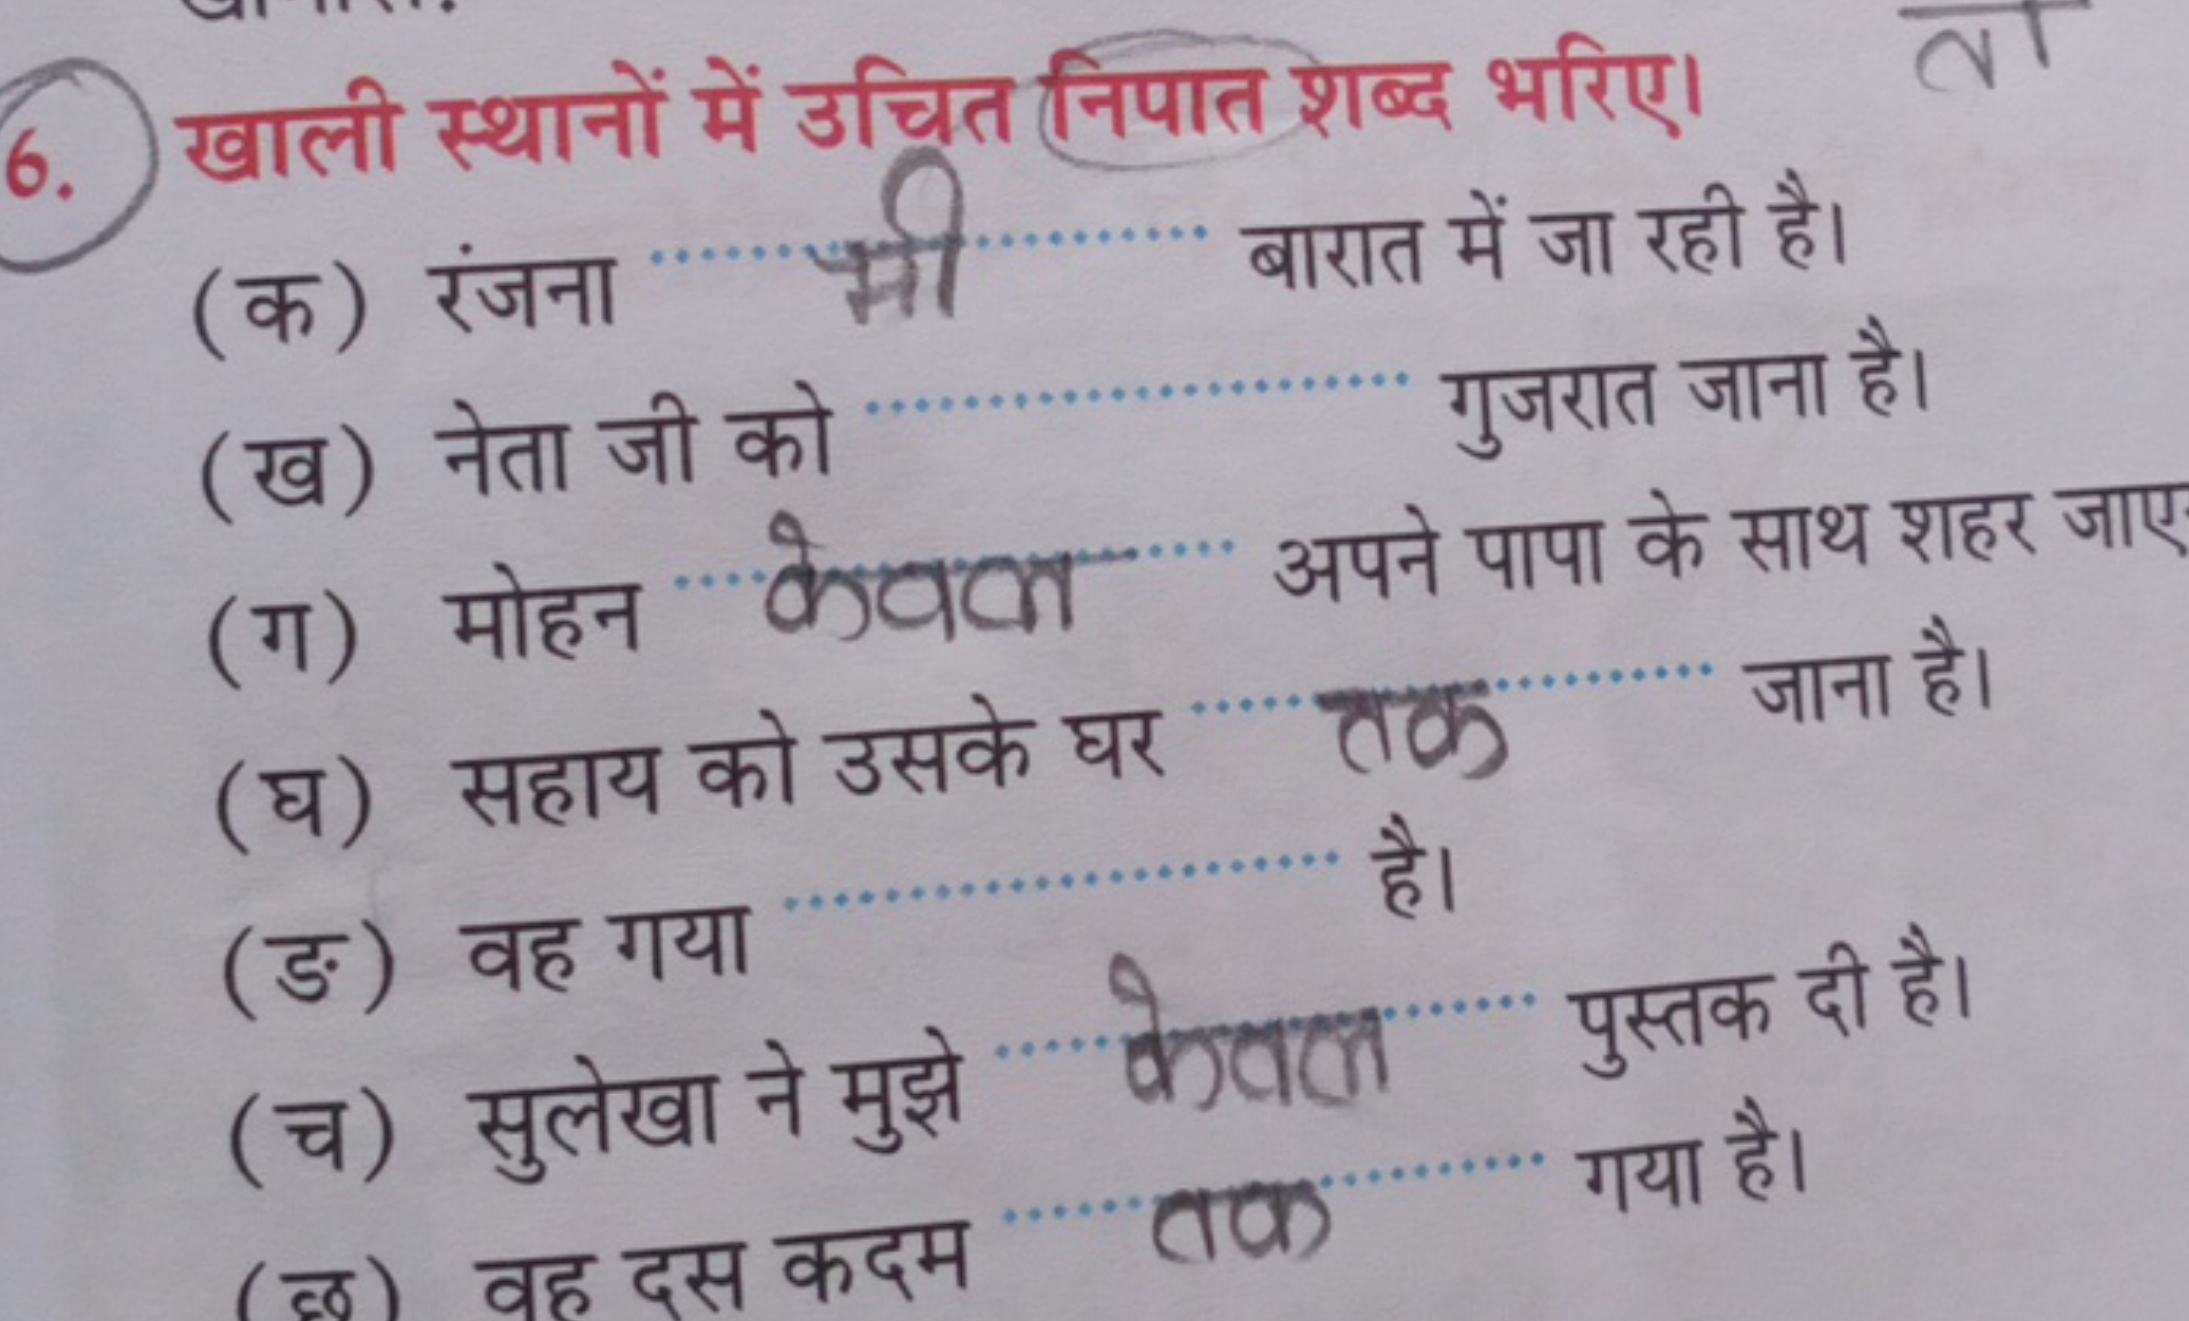 6. खाली स्थानों में उचित निपात शब्द भरिए।
(क) रंजना भी बारात में जा रही है।
(ख) नेता जी को .................... गुजरात जाना है।
(ग) मोहन केवल अपने पापा के साथ शहर जाए
(घ) सहाय को उसके घर तक जाना है।
(ङ) वह गया .................... है।
(च) सुलेखा ने मुझे केवल पुस्तक दी है।
(छ) वह दस कदम तक गया है।